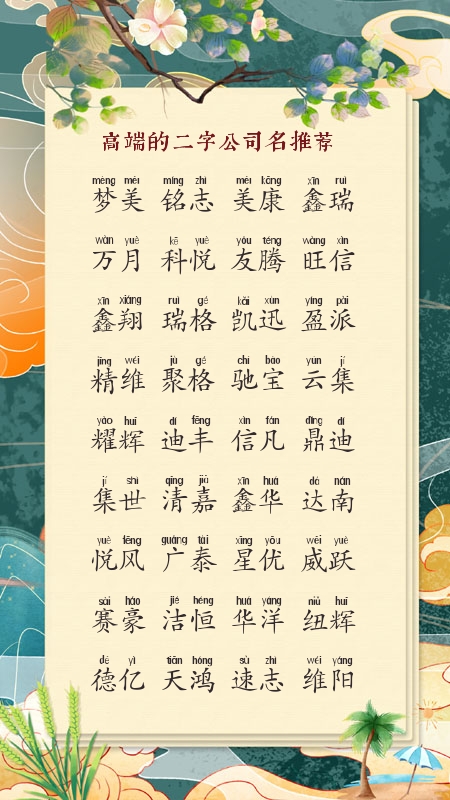 高端的二字公司名推荐
mèng měi míng zhì měi kāng xīn ruì
梦美 铭志 美康 鑫瑞
wàn yuè kē yuè yǒu téng wàng xìn
万月 科悦 友腾 旺信
xīn xiáng ruì gé kǎi xùn yíng pài
鑫翔 瑞格 凯迅 盈派
jīng wéi jù gé chí bǎo yún jí
精维 聚格 驰宝 云集
yào huī dí fēng xìn fán dǐng dí
耀辉 迪丰 信凡 鼎迪
jí shì qīng jiā xīn huá dá nán
集世 清嘉 鑫华 达南
yuè fēng guǎng tài xīng yōu wēi yuè
悦风 广泰 星优 威跃
sài háo jié héng huá yáng niǔ huī
赛豪 洁恒 华洋 纽辉
dé yì tiān hóng sù zhì wéi yáng
德亿 天鸿 速志 维阳